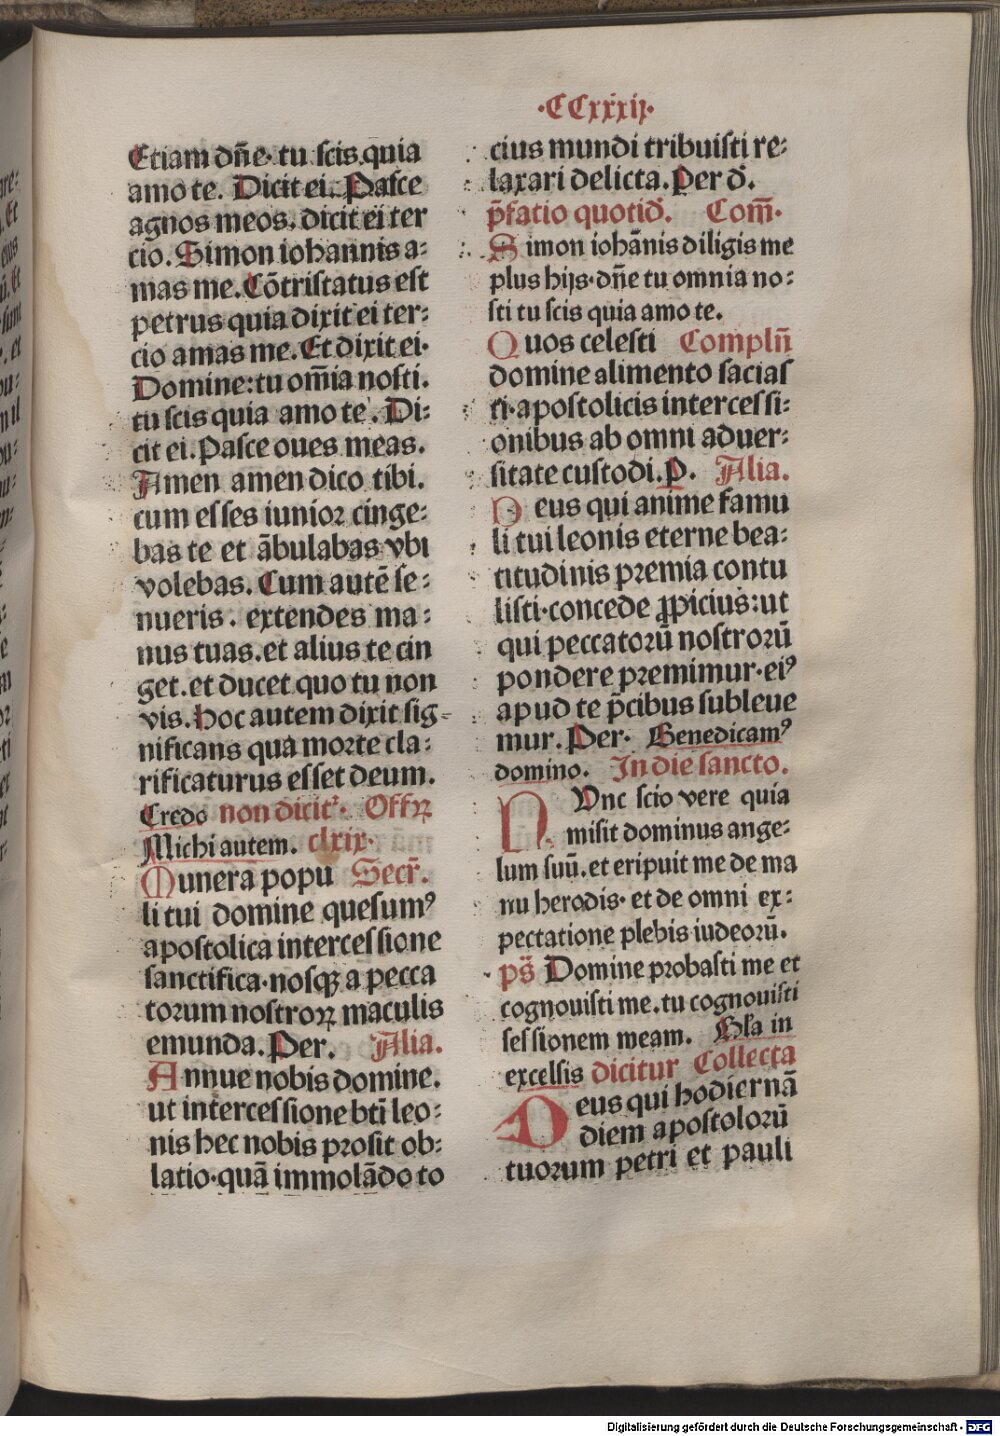 ·CCxxxij·
Etiam dñe· tu scis quia
amo te. Dicit ei. Pasce
agnos meos. dicit ei ter
cio. Simon iohannis a-
mas me. Cõtristatus est
petrus quia dixit ei ter-
cio amas me. Et dixit ei·
Domine: tu om̃ia nosti.
tu scis quia amo te. Di-
cit ei. Pasce oues meas.
Amen amen dico tibi.
cum esses iunior cinge-
bas te et ãbulabas vbi
volebas. Cum autẽ se-
nueris. extendes ma-
nus tuas. et alius te cin
get. et ducet quo tu non
vis. Hoc autem dixit sig-
nificans qua morte cla-
rificaturus esset deum.
Credo non dicitᷣ. Offꝝ
Michi autem. clxix·
Munera popu Secr̃.
li tui domine quesumꝰ
apostolica intercessione
sanctifica· nosqꝫ a pecca
torum nostroꝝ maculis
emunda. Per. Alia.
Annue nobis domine.
ut intercessione bt̃i leo-
nis hec nobis prosit ob-
latio· quã immolãdo to
cius mundi tribuisti re-
laxari delicta. Per d̃.
p̃fatio quotid̃. Com̃·
Simon iohãnis diligis me
plus hijs· dñe tu omnia no-
sti tu scis quia amo te.
Quos celesti Compleñ
domine alimento sacias
ti· apostolicis intercessi-
onibus ab omni aduer-
sitate custodi. P. Alia.
Deus qui anime famu
li tui leonis eterne bea-
titudinis premia contu
listi· concede ꝓpicius: ut
qui peccatorũ nostrorũ
pondere premimur· eiꝰ
apud te p̃cibus subleue
mur. Per· Benedicamꝰ
domino. In die sancto.
NVnc scio vere quia
misit dominus ange-
lum suũ. et eripuit me de ma
nu herodis· et de omni ex-
pectatione plebis iudeorũ.
ps̃ Domine probasti me et
cognouisti me. tu cognouisti
sessionem meam. Gl̃a in
excelsis dicitur Collecta
Deus qui hodiernã
diem apostolorũ
tuorum petri et pauli
Digitalisierung gefördert durch die Deutsche Forschungsgemeinschaft - DFG